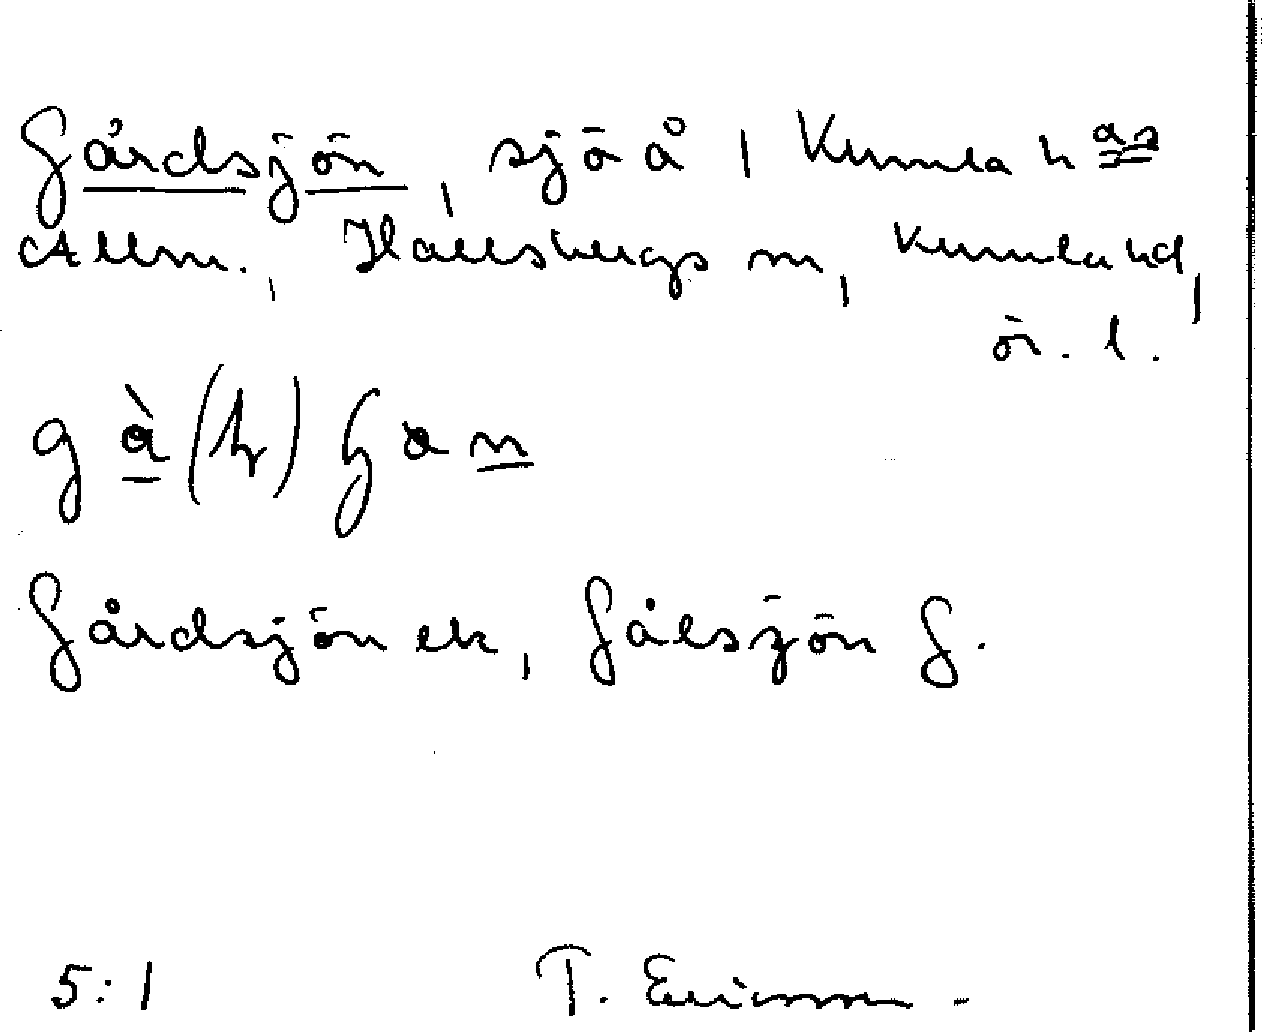 Gårdsjön, sjö å, Kumla h as
Allm., Hallsbergs m, Kumla hd,
ör. l.
Gårdsjön ek, Gålsjön G.
5:1 T. Ericsson -